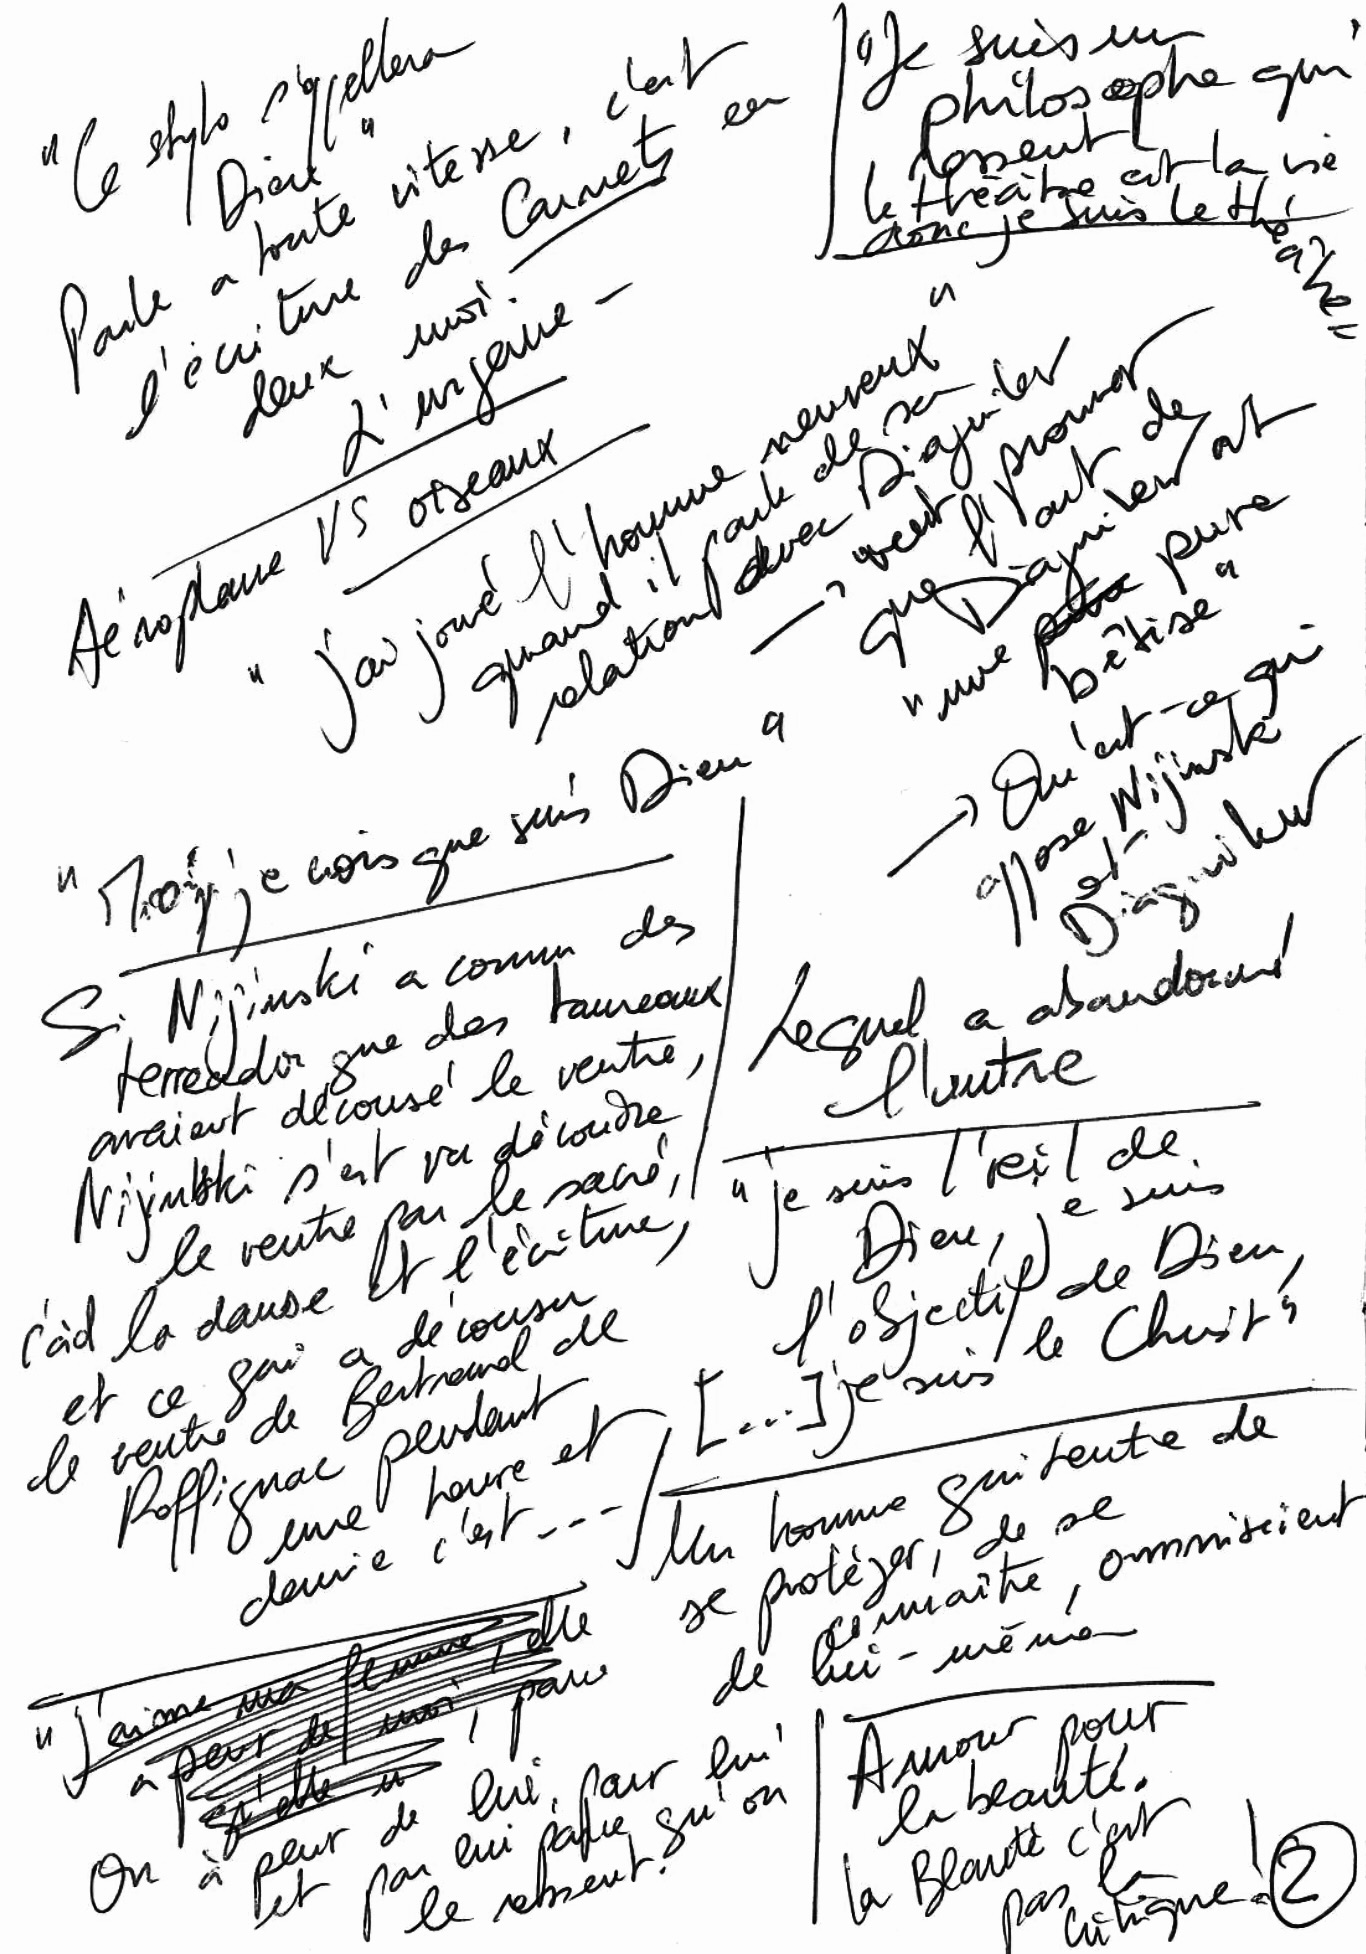 "Ce stylo s'appellera
Dieu"
Parle a toute vitesse, c'est
l'écriture des Carnets en
deux moi.
L'urgence -
"Je suis un
philosophe qui
ressent
le théâtre est la vie
donc je suis le théâtre"
Aéroplane VS oiseaux
"j'ai joué l'homme nerveux"
quand il parle de sa
relation avec Diaguilev
→ veut prouver
que l'art de
Diaguilev est
"une pure
bêtise"
→ Qu'est-ce qui
oppose Nijinski
et
Diaguilev
Lequel a abandonné
l'autre
"Moi, je crois que suis Dieu"
Si Nijinski a connu des
terreador que des taureaux
avaient décousé le ventre,
Nijinski s'est vu découdre
le ventre par le sacré,
c'àd la danse et l'écriture,
et ce qui a décousu
le ventre de Bertrand de
Roffignac pendant
une heure et
demie c'est ---
"je suis l'œil de
Dieu, je suis
l'objectif de Dieu,
[...] je suis le Christ"
Un homme qui tente de
se protéger, de se
connaître, omniscient
de lui-même
"J'aime ma femme, elle
a peur de moi, parce
qu'elle
On à peur de lui, pour lui
et par lui parce qu'on
le ressent.
Amour pour
la beauté.
la Beauté c'est
pas la
critique!
2